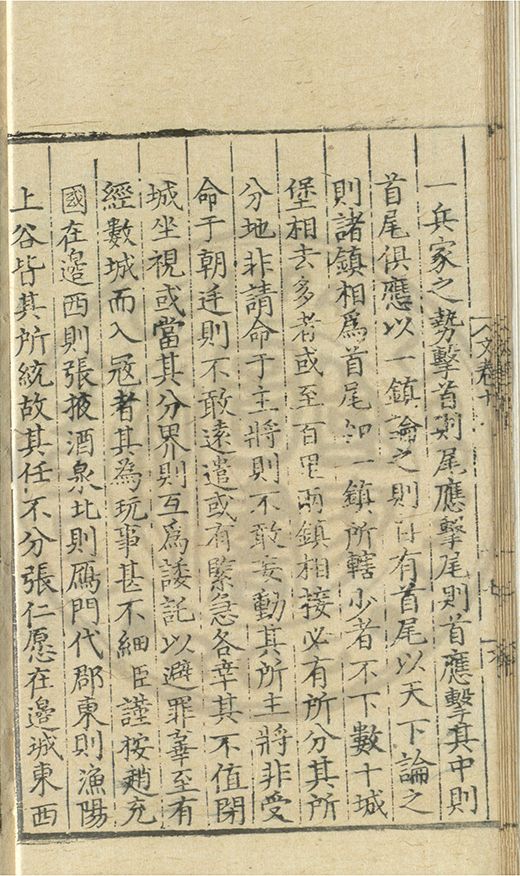 文卷十
一兵家之勢擊首則尾應擊尾則首應擊其中則
首尾俱應以一鎮論之則自有首尾以天下論之
則諸鎮相爲首尾如一鎮所轄少者不下數十城
堡相去多者或至百里兩鎮相接必有所分其所
分地非請命于主將則不敢妄動其所主將非受
命于朝廷則不敢遠遣或有緊急各幸其不值閉
城坐視或當其分界則互爲諉託以避罪辜至有
經數城而入冦者其為玩事甚不細臣謹桉趙充
國在邉西則張掖酒泉北則鴈門代郡東則漁陽
上谷皆其所統故其任不分張仁愿在邉城東西